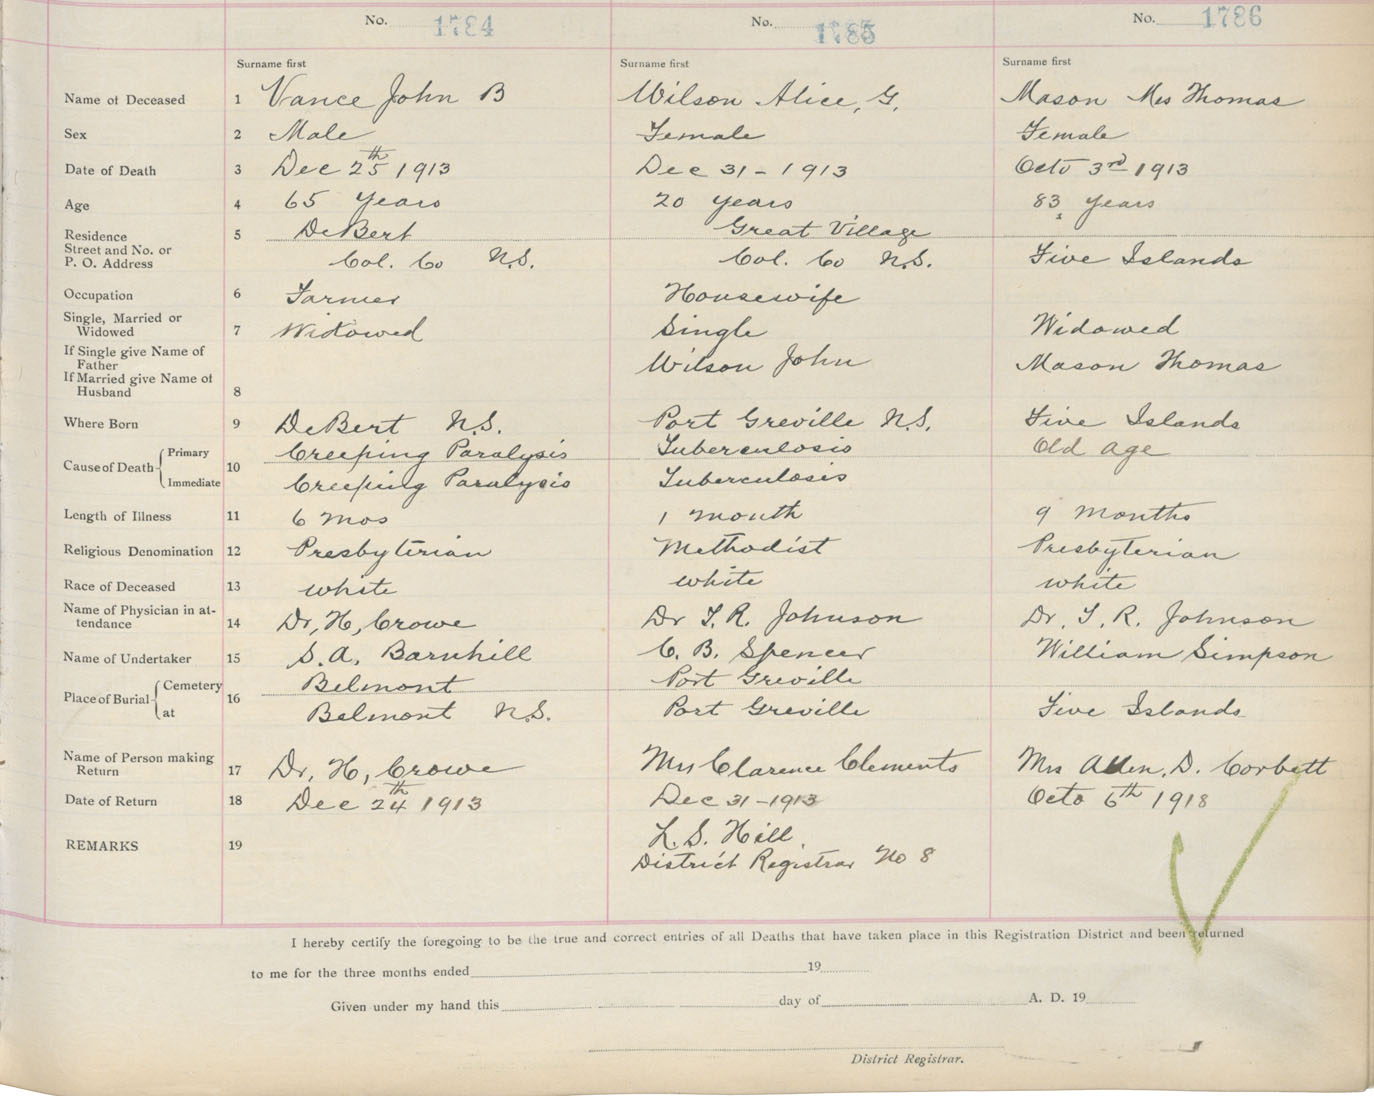 No. 1784 No. 1785 No. 1786
Surname first Surname first Surname first
Name of Deceased 1 Vance John B Wilson Alice, G. Mason Mrs Thomas
Sex 2 Male Female Female
Date of Death 3 Dec 25th 1913 Dec 31 - 1913 Octo 3rd 1913
Age 4 65 Years 20 years 83 years
Residence 5 DeBert Great Village
Street and No. or
P. O. Address Col. Co N.S. Col. Co N.S. Five Islands
Occupation 6 Farmer Housewife
Single, Married or
Widowed 7 Widowed Single Widowed
If Single give Name of
Father Wilson John Mason Thomas
If Married give Name of
Husband 8
Where Born 9 DeBert N.S. Port Greville N.S. Five Islands
Cause of Death 10
Primary Creeping Paralysis Tuberculosis Old Age
Immediate Creeping Paralysis Tuberculosis
Length of Illness 11 6 mos 1 month 9 Months
Religious Denomination 12 Presbyterian Methodist Presbyterian
Race of Deceased 13 white white white
Name of Physician in at-
tendance 14 Dr, H, Crowe Dr T. R. Johnson Dr. T. R. Johnson
Name of Undertaker 15 S. A. Barnhill C. B. Spencer William Simpson
Place of Burial 16
Cemetery Belmont Port Greville
at Belmont N.S. Port Greville Five Islands
Name of Person making
Return 17 Dr, H, Crowe Mrs Clarence Clements Mrs Allen. D. Corbett
Date of Return 18 Dec 24th 1913 Dec 31 - 1913 Octo 6th 1918
REMARKS 19 L. S. Hill.
District Registrar No 8
I hereby certify the foregoing to be the true and correct entries of all Deaths that have taken place in this Registration District and been returned
to me for the three months ended 19
Given under my hand this day of A. D. 19
District Registrar.